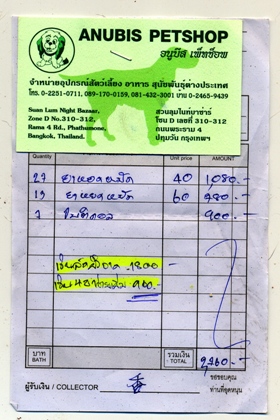 ANUBIS PETSHOP
อนูบิส เพ็ทช็อพ
จำหน่ายอุปกรณ์สัตว์เลี้ยง อาหาร สุนัขพันธุ์ต่างประเทศ
โทร. 0-2251-0711, 089-170-0159, 081-432-3001 บ้าน 0-2465-9439
Suan Lum Night Bazaar,
Zone D No.310-312,
Rama 4 Rd., Phathumone,
Bangkok, Thailand.
สวนลุมไนท์บาซาร์
โซน D เลขที่ 310-312
ถนนพระราม 4
ปทุมวัน กรุงเทพฯ
Quantity Unit price AMOUNT
27 ยาหยอดหมัด 40 1,080.-
13 60 780.-
900.-
1800.-
900.-
บาท
BATH
รวมเงิน
TOTAL
ผู้รับเงิน / COLLECTOR
ขอขอบคุณ
ท่านที่อุดหนุน